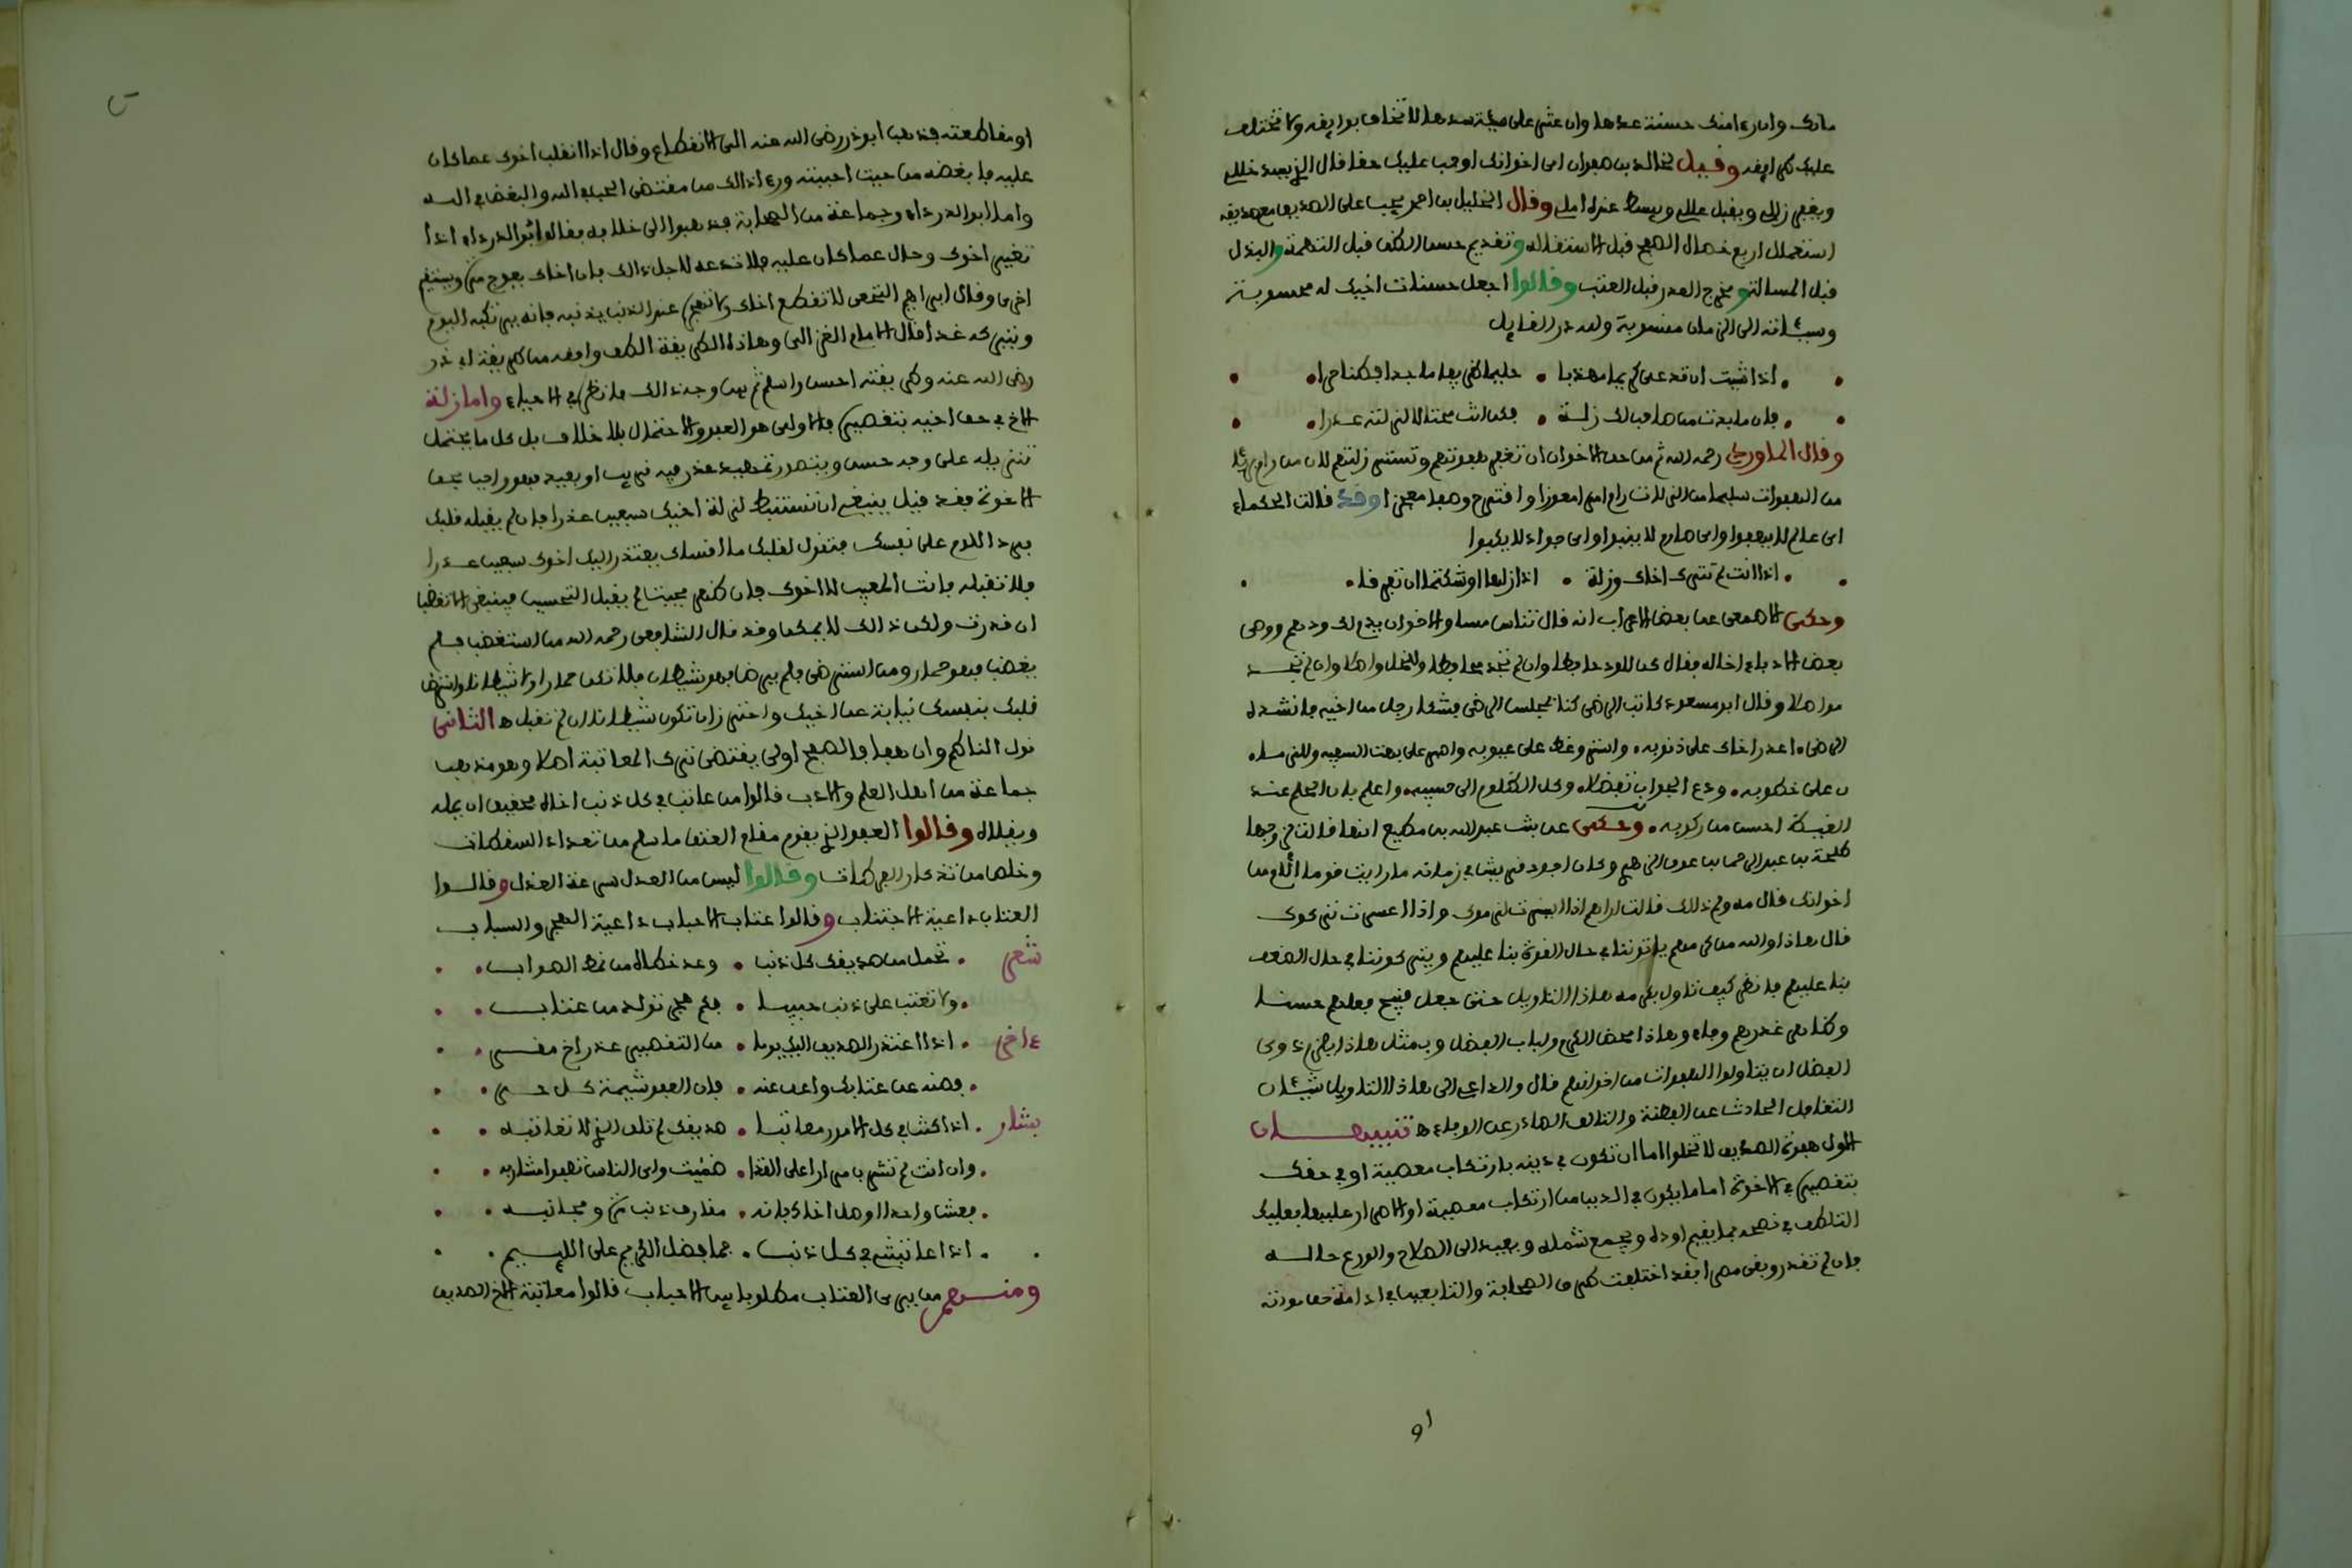 مالك وان رءا منك حسنة عدها وان عثر على سيئة سدها لا تخاف بوايقه ولا تختلف
عليك طرايقه وقيل لخالد بن صفوان اى اخوانك اوجب عليك حقا قال الذي يسد خللي
ويغفر زللي ويقبل عللي ويبسط عذره املي وقال الخليل بن احمد يجب على الصديق مع صديقه
استعمال اربع خصال الصفح قبل الاستقاله وتقديم حسن الظن قبل التهمة والبذل
قبل المسالة ومخرج العذر قبل العتب وقالوا اجعل حسنات اخيك له محسوبة
وسيئاته الى الزمان منسوبة ولله در القايل
اذا شئت ان تدعى كريما مهذبا • حليما ظريفا ماجدا فطنا حرا
فان ما بدت من صاحب لك زلة • فكن انت محتالا لزلته عذرا
وقال الماوردي رحمه الله ثم من حق الاخوان ان تغفر هفوتهم وتستر زلتهم لان من رام بريئا
من الهفوات سليما من الزلات رام امرا معوزا واقترح وصفا معجزا وقد قالت الحكماء
اى عالم لا يهفوا واى صارم لا ينبوا واى جواد لا يكبوا
اذا انت لم تترك اخاك وزلة • اذا زلها اوشكتما ان تفرقا
وحكى الاصمعى عن بعض الاعراب انه قال تناس مساو الاخوان يدم لك ودهم ووصى
بعض الادباء اخا له فقال كن للود حافظا وان لم تجد محافظا وللخل واصلا وان لم تجد
مواصلا وقال ابو مسعود كاتب الرضى كنا بمجلس الرضى فشكا رجل من اخيه فانشد له
الرضى • اعذر اخاك على ذنوبه • واستر وغط على عيوبه واصبر على بهت السفيه وللزمان
ن على خطوبه • ودع الجواب تفضلا • وكل الظلوم الى حسيبه • واعلم بان الحلم عند
الغيظ احسن من ركوبه • وحكى عن بنت عبد الله بن مطيع انها قالت لزوجها
طلحة بن عبد الرحمن بن عوف الزهري وكان اجود قريش في زمانه ما رايت قوما الام من
اخوانك قال مه ولم ذلك قالت اراهم اذا ايسرت لزموك واذا اعسرت تركوك
قال هاذا والله من كرمهم ياتوننا في حال القوة بنا عليهم ويتركوننا في حال الضعف
بنا عليهم فانظر كيف تاول بكرمه هاذا التاويل حتى جعل قبيح فعلهم حسنا
وظاهر غدرهم وفاء وهاذا محض الكرم ولباب الفضل وبمثل هاذا يلزم ذوى
الفضل ان يتاولوا الهفوات من اخوانهم قال والداعي الى هاذا التاويل شيئان
التغافل الحادث عن الفطنة والتالف الصادر عن الوفاء ه تنبيهان
الاول هفوة الصديق لا تخلوا اما ان تكون في دينه بارتكاب معصية او في حقك
بتقصيره في الاخوة اما ما يكون في الدين من ارتكاب معصية او الاصرار عليها فعليك
التلطف في نصحه بما يقيم اوده ويجمع شمله ويعيد الى الصلاح والورع حاله
فان لم تقدر وبقى مصرا فقد اختلفت طرق الصحابة والتابعين في ادامة حق مودته
او
او مقاطعته فذهب ابو ذر رضى الله عنه الى الانقطاع وقال اذا انقلب اخوك عما كان
عليه فابغضه من حيث احببته ورءا ذالك من مقتضى الحب في الله والبغض في الله
واما ابو الدرداء وجماعة من الصحابة فذهبوا الى خلافه فقال ابو الدرداء اذا
تغير اخوك وحال عما كان عليه فلا تدعه لاجل ذالك فان اخاك يعوج مرة ويستقيم
اخرى وقال ابراهيم النخعى لا تقطع اخاك ولا تهجره عند الذنب يذنبه فانه يرتكبه اليوم
ويتركه غدا قال الامام الغزالى وهاذه الطريقة الطف وافقه من طريقة ابى ذر
رضى الله عنه وطريقته احسن واسلم ثم بين وجه ذالك فانظره في الاحياء واما زلة
الاخ في حق اخيه بتقصيره فالاولى هو العفو والاحتمال بلا خلاف بل كل ما يحتمل
تنزيله على وجه حسن ويتصور تمهيد عذر فيه قريب او بعيد فهو واجب بحق
الاخوة فقد قيل ينبغى ان تستنبط لزلة اخيك سبعين عذرا فان لم يقبله قلبك
فرد اللوم على نفسك فتقول لقلبك ما اقساك يعتذر اليك اخوك سبعين عذرا
فلا تقبله فانت المعيب لا اخوك فان ظهر بحيث لم يقبل التحسين فينبغى الا تغضب
ان قدرت ولكن ذالك لا يمكن وقد قال الشافعى رحمه الله من استغضب فلم
يغضب فهو حمار ومن استرضى فلم يرض فهو شيطان فلا تكن حمارا ولا شيطانا واسترض
قلبك بنفسك نيابة عن اخيك واحترز ان تكون شيطانا ان لم تقبل ه الثانى
قول الناظم وان هفا فالصفح اولى يقتضى ترك المعاتبة اصلا وهو مذهب
جماعة من اهل العلم والادب قالوا من عاتب في كل ذنب اخاه فحقيق ان يمله
ويقلاه وقالوا العفو الذي يقوم مقام العتق ما سلم من تعداد السقطات
وخلص من تذكار الفرطات وقالوا ليس من العدل سرعة العذل وقالوا
العتاب داعية الاجتناب وقالوا عتاب الاحباب داعية الهجر والسباب
شعر • تحمل من صديقك كل ذنب • وعد خطاه من نمط الصواب
ولا تعتب على ذنب حبيبا • فكم هجر تولد من عتاب
ءاخر • اذا اعتذر الصديق اليك يوما • من التقصير عذر اخ مقر
فصنه عن عتابك واعف عنه • فان العفو شيمة كل حر
بشار • اذا كنت في كل الامور معاتبا • صديقك لم تلق الذي لا تعاتبه
وان انت لم تشرب مرارا على القذا • ظمئت واى الناس تصفوا مشاربه
فعش واحدا او صل اخاك فانه • مقارف ذنب مرة ومجانبه
اذا عاتبت في كل ذنب • فما فضل الكريم على اللئيم
ومنهم من يرى العتاب مطلوبا بين الاحباب قالوا معاتبة الاخ الصديق